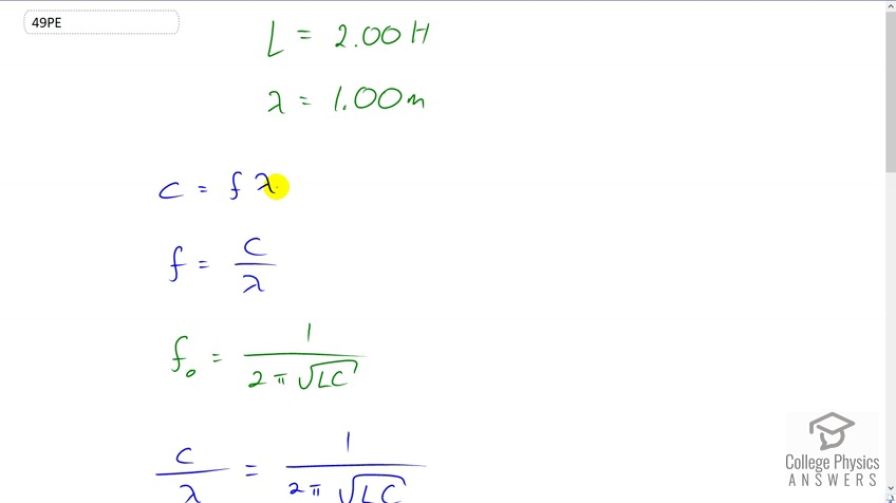 49PE
L = 2.00 H
λ = 1.00 m
c = f λ
f = c / λ
f₀ = 1 / 2π √LC
c / λ = 1 / 2π √LC
College Physics
ANSWERS